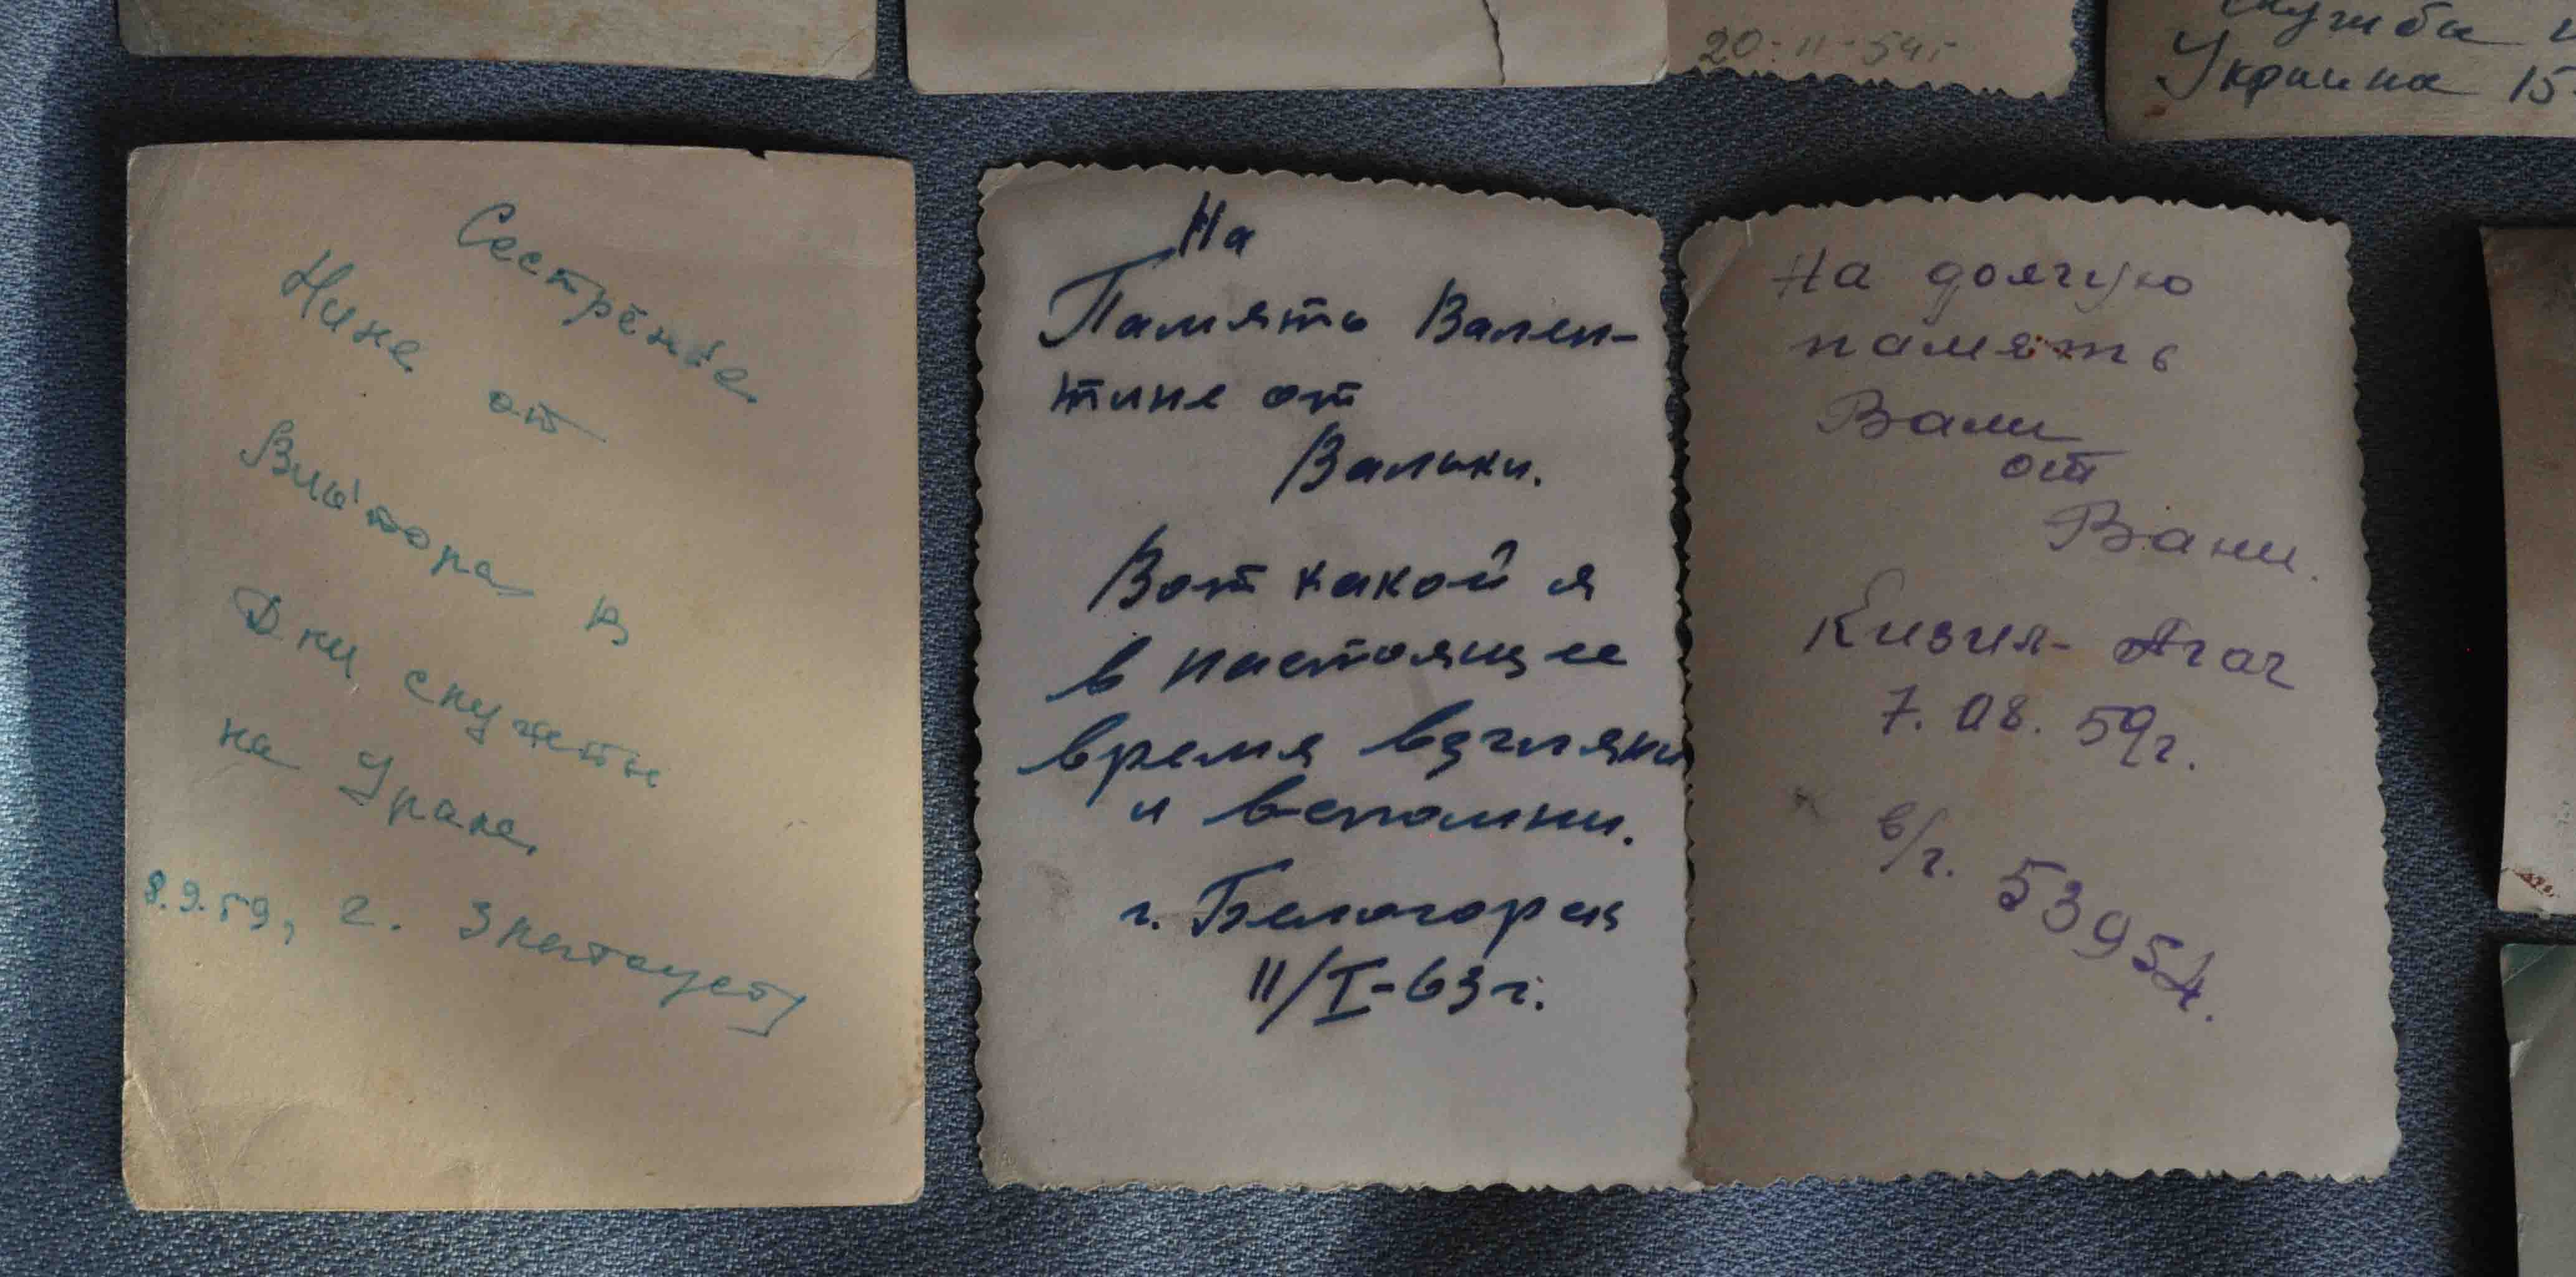 20-11-54г
служба
Украина 15
Сестрёнке
Нине от
Виктора в
Дни службы
на Урале,
8.9.59, г. Златоуст
На
Память Вален-
тине от
Вальки.
Вот какой я
в настоящее
время взгляни
и вспомни.
г. Белогорск
11/I-63г.
На долгую
память
Вали
от
Вани.
Кизил-Агач
7.08.59г.
в/г. 53954.